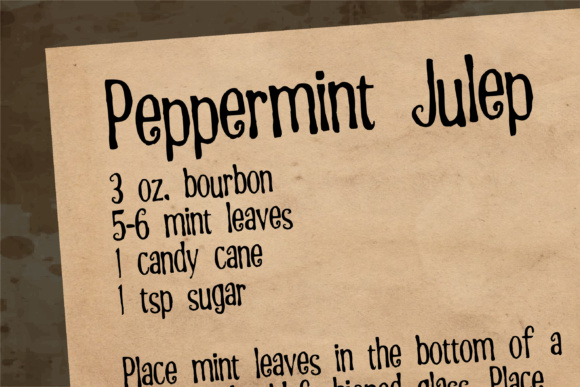 Peppermint Julep
3 oz. bourbon
5-6 mint leaves
1 candy cane
1 tsp sugar
Place mint leaves in the bottom of a
glass. Place